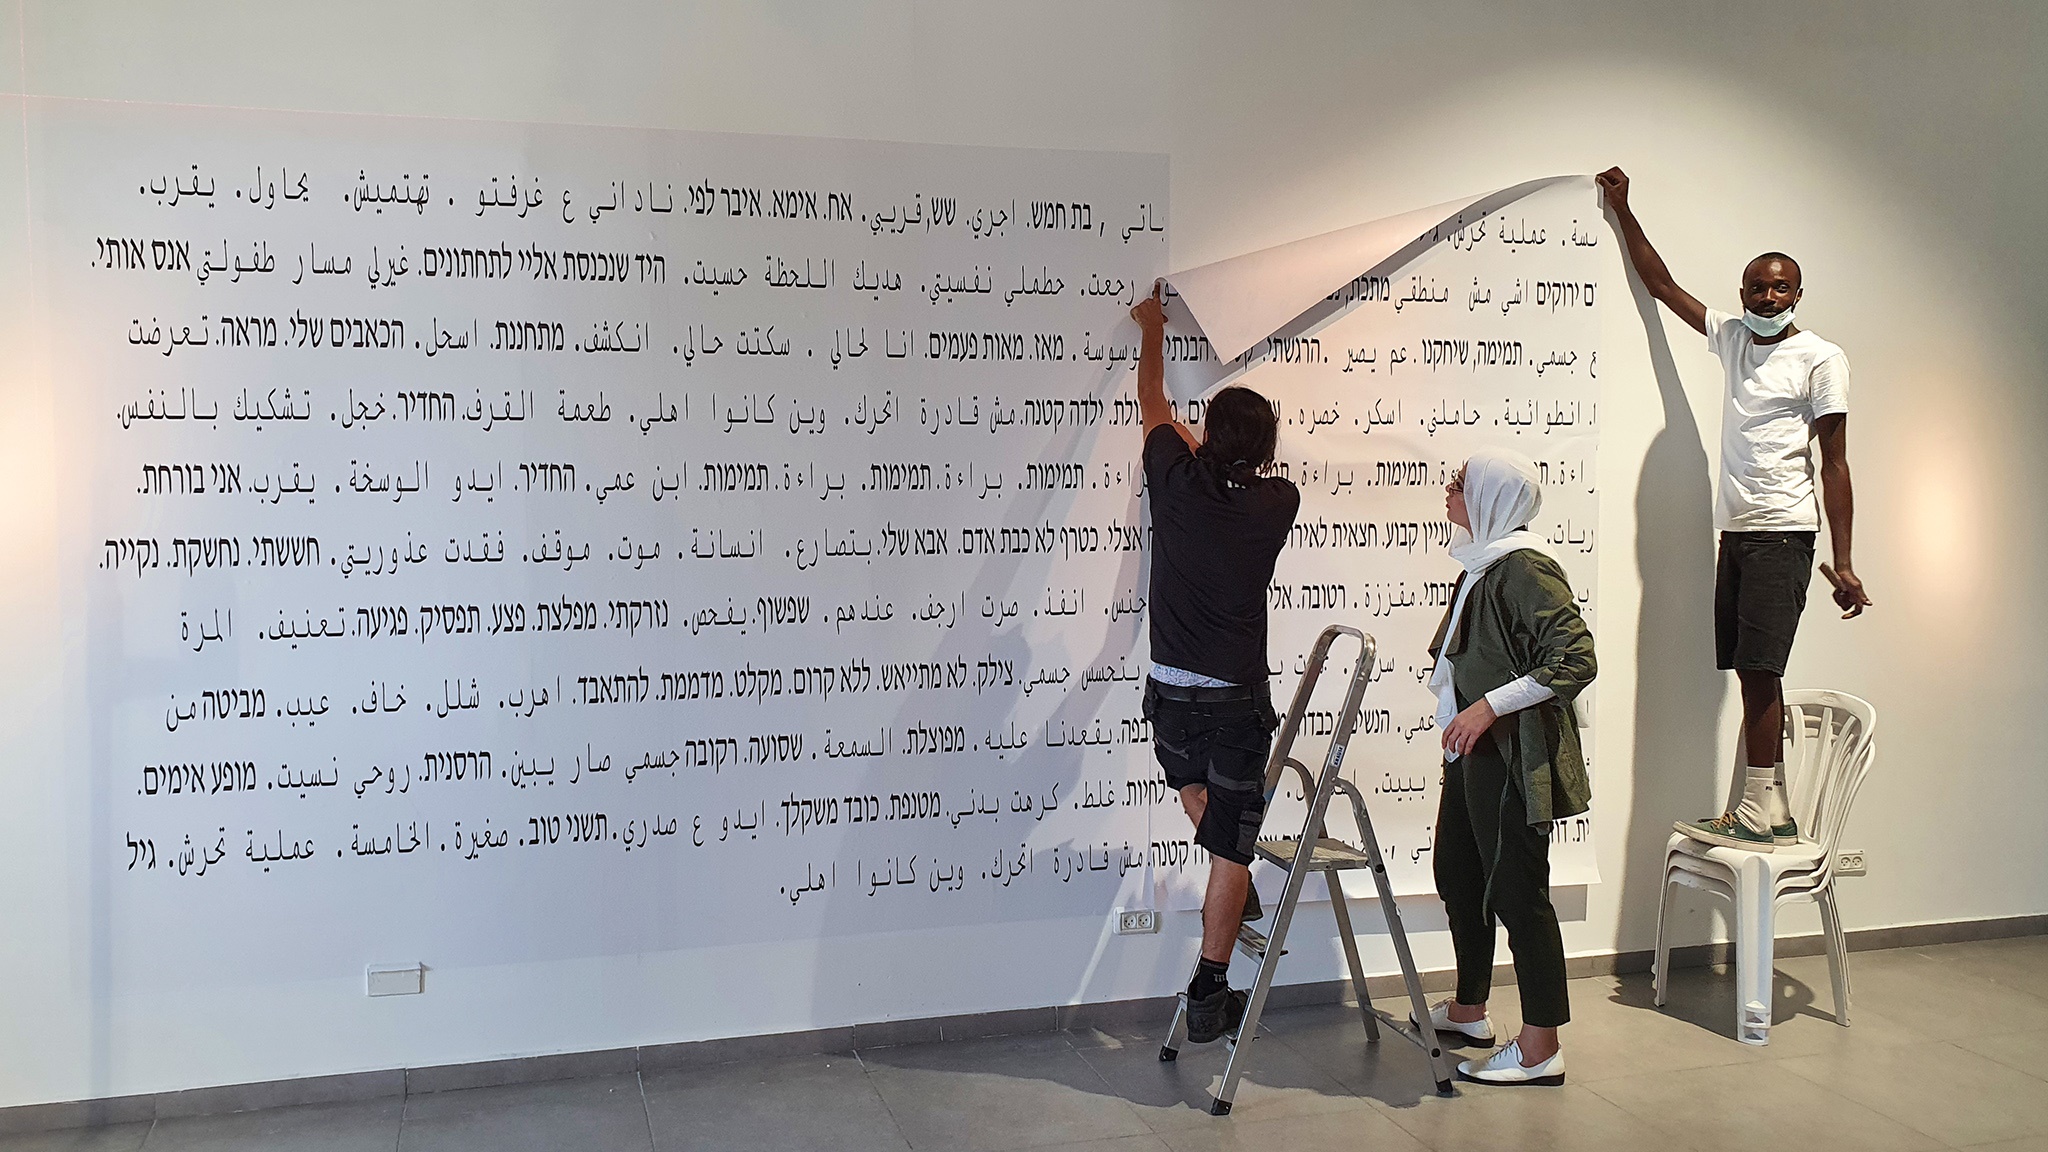 عملية تحرش. باتي , בת חמש. اجري. שש, قريبي. אח. אימא. איבר לפי. ناداني ع غرفتو . تهتميش. يحاول. يقرب.
ירוקים اشي مش منطقي מתכת, رجعت. حطملي نفسيتي. هديك اللحظة حسيت. היד שנכנסת אליי לתחתונים. غيرلي مسار طفولتي אנס אותי.
جسمي. תמימה, שיחקנו . عم يصير . הרגשתי. وسوسة . מאז. מאות פעמים. انا لحالي . سكتت حالي. انكشف. מתחננת. اسحل. הכאבים שלי. מראה. تعرضت
انطوائية. حاملني. اسكر. خصره. ילדה קטנה. مش قادرة اتحرك. وين كانوا اهلي. طعمة القرف. החדיר. خجل. تشكيك بالنفس.
براءة. תמימות. براءة. תמימות. براءة. תמימות. براءة. תמימות. ابن عمي. החדיר. ايدو الوسخة. يقرب. אני בורחת.
עניין קבוע. חצאית אצלי. כטרף לא כבת אדם. אבא שלי. بتصارع. انسانة. موت. موقف. فقدت عذوريتي. חששתי. נחשקת. נקייה.
مقززة. רטובה. انفذ. صرت ارجف. عندهم. שפשוף. يفحص. נזרקתי. מפלצת. פצע. תפסיק. פגיעה. تعنيف. المرة
يتحسس جسمي. צילק. לא מתייאש. ללא קרום. מקלט. מדממת. להתאבד. اهرب. شلل. خاف. عيب. מביטה من
عمي. يقعدنا عليه. מפוצלת. السمعة. שסועה. רקובה جسمي صار يبين. הרסנית. روحي نسيت. מופע אימים.
ببيت. לחיות. غلط. كرهت بدني. מטנפת. כובד משקלך. ايدو ع صدري. תשני טוב. صغيرة. الخامسة. عملية تحرش. גיל
קטנה. مش قادرة اتحرك. وين كانوا اهلي.